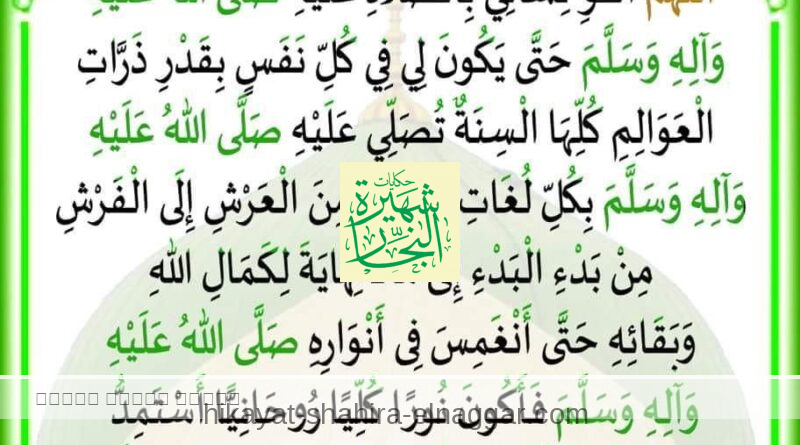 وَآلِهِ وَسَلَّمَ حَتَّى يَكُونَ لِي فِي كُلِّ نَفَسٍ بِقَدْرِ ذَرَّاتِ
الْعَوَالِمِ كُلِّهَا الْسِنَةٌ تُصَلِّي عَلَيْهِ صَلَّى اللهُ عَلَيْهِ
وَآلِهِ وَسَلَّمَ بِكُلِّ لُغَاتِ مِنَ الْعَرْشِ إِلَى الْفَرْشِ
حكايات
شهيرة
النجار
مِنْ بَدْءِ الْبَدْءِ إِلَى لِكَمَالِ اللهِ
وَبَقَائِهِ حَتَّى أَنْغَمِسَ فِى أَنْوَارِهِ صَلَّى اللهُ عَلَيْهِ
وَآلِهِ وَسَلَّمَ فَأَكُونَ نُورًا كُلِّيًا رُوحَانِيًّا أَسْتَمِدُّ
hikayat-shahira-elnaggar.com